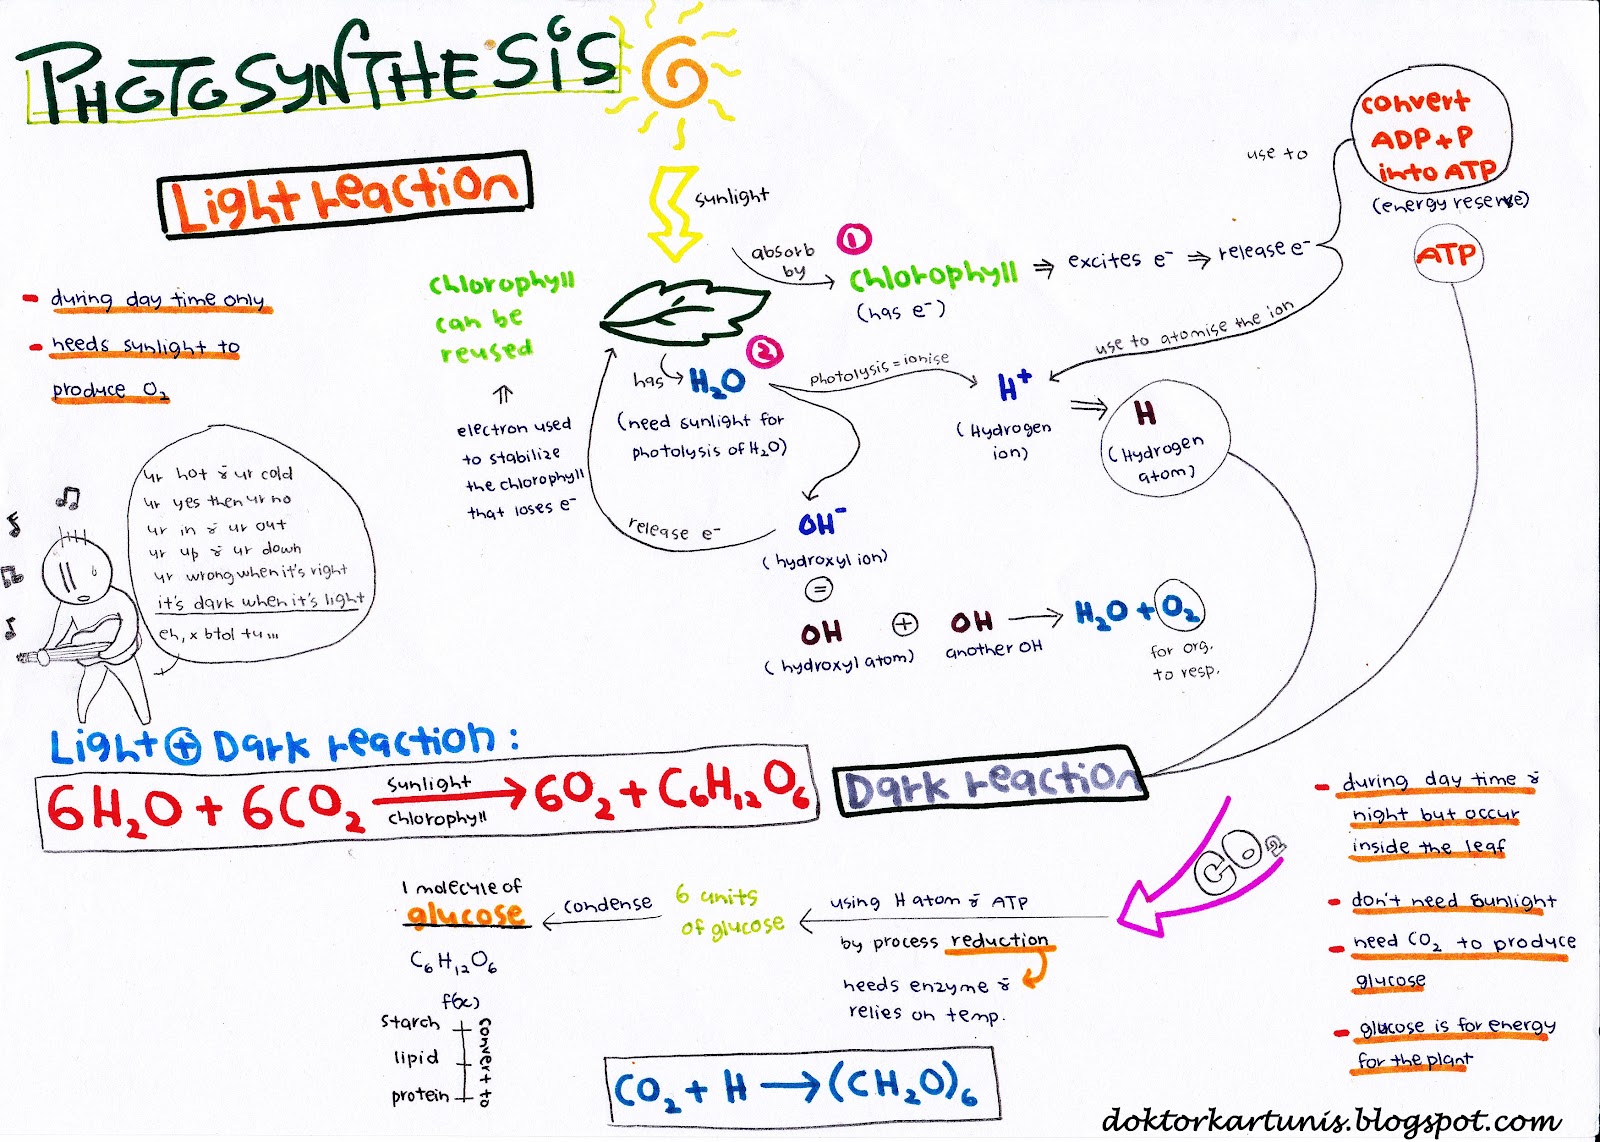 PHOTOSYNTHESIS
Light reaction
sunlight
- during day time only
- needs sunlight to
produce O₂
chlorophyll
can be
reused
electron used
to stabilize
the chlorophyll
that loses e⁻
absorb
by
1
chlorophyll
(has e⁻)
⇒ excites e⁻ ⇒ release e⁻
use to
convert
ADP + P
into ATP
(energy reserve)
ATP
use to atomise the ion
has
2
H₂O
(need sunlight for
photolysis of H₂O)
photolysis = ionise
H⁺
(Hydrogen
ion)
H
(Hydrogen
atom)
release e⁻
OH⁻
(hydroxyl ion)
=
OH + OH → H₂O + O₂
(hydroxyl atom)
another OH
for org.
to resp.
ur hot & ur cold
ur yes then ur no
ur in & ur out
ur up & ur down
ur wrong when it's right
it's dark when it's light
eh, x btol tu...
Light + Dark reaction:
6H₂O + 6CO₂ → 6O₂ + C₆H₁₂O₆
sunlight
chlorophyll
Dark reaction
CO₂
- during day time &
night but occur
inside the leaf
- don't need sunlight
- need CO₂ to produce
glucose
- glucose is for energy
for the plant
using H atom & ATP
by process reduction
needs enzyme &
relies on temp.
6 units
of glucose
condense
1 molecule of
glucose
C₆H₁₂O₆
f(x)
convert to
starch
lipid
protein
CO₂ + H → (CH₂O)₆
doktorkartunis.blogspot.com